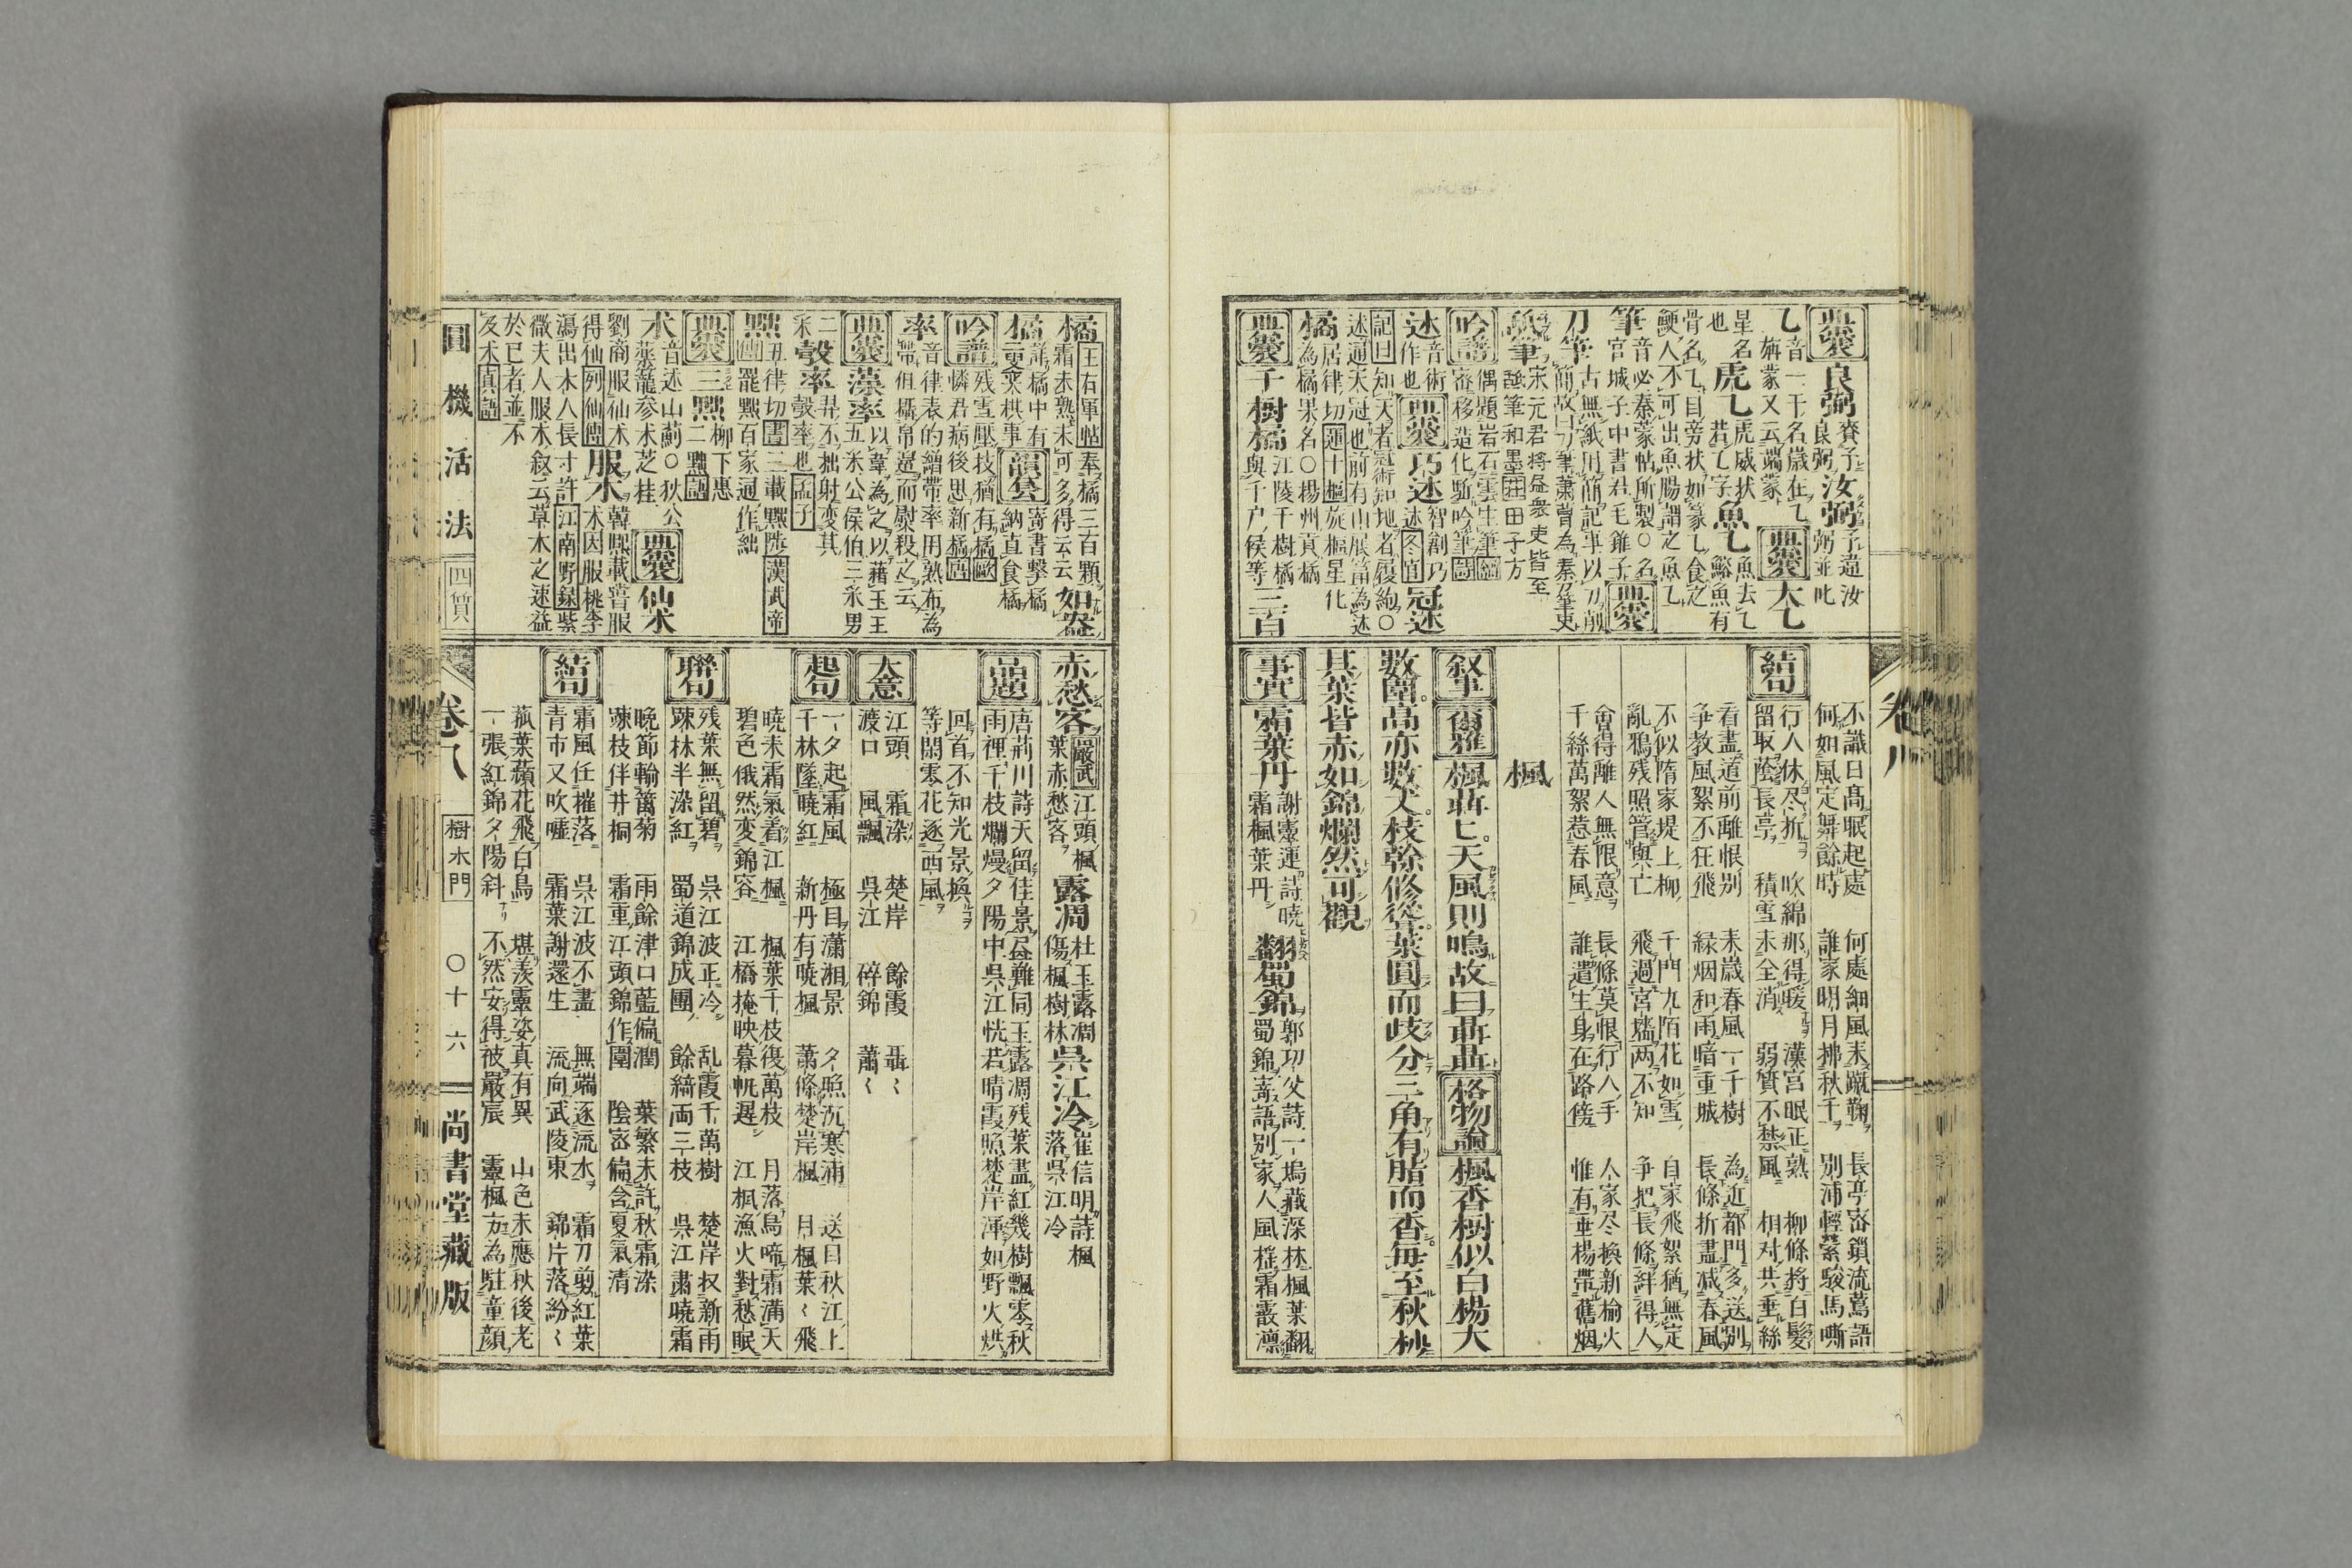 典叢 良弼 賚予
良弼 汝弼 予違汝
弼並叱
乙 音一干名歳在乙
旃蒙又云端蒙 典叢 太乙
星名
也 虎乙 虎威状
若乙字 魚乙 魚去乙
鰫魚有
骨名乙目旁状如篆乙食之
鯁人不可出魚腸謂之魚乙
筆 音必秦蒙恬所製〇名
官城子中書君毛錐子 典叢
刀筆 古無紙用簡記事以刀削
簡故曰刀筆蕭曹為秦刀筆吏
舐筆 宋元君将畫衆吏皆至
舐筆和墨 荘田子方
吟譜 偶題岩石雲生筆
密移造化驅吟筆
述 音術
作也 典叢 巧述 智創巧
述 冬官 冠述
記曰知天者冠術知地者履絇〇
述通天冠也前有山展筩為述
橘 居律切 運十樞旋樞星化
為橘果名〇楊州貢橘
典叢 千樹橘 江陵千樹橘
與千戸侯等 三百
不識日高眠起處 何處細風未蹴鞠 長亭密鎖流鶯語
何如風定舞餘時 誰家明月拂秋千 別浦輕縈駿馬嘶
結句 行人休尽折 吹綿那得暖 漢宮眠正熟 柳條将白髪
留取蔭長亭 積雪未全消 弱質不禁風 相対共垂絲
看盡道前離恨別 来歳春風一千樹 為近都門多送別
争教風絮不狂飛 緑烟和雨暗重城 長條折盡减春風
不似隋家堤上柳 千門九陌花如雪 自家飛絮猶無定
亂鴉残照管興亡 飛過宮墻両不知 争把長條絆得人
會得離人無限意 長條莫恨行人手 人家尽換新楡火
千絲萬絮惹春風 誰遣生身在路傍 惟有垂楊帯舊烟
楓
叙筆 爾雅 楓聶ヒ天風則鳴故曰聶聶 格物論 楓香樹似白楊大
數圍高亦數丈枝幹修聳葉圓而歧分三角有脂而香毎至秋杪
其葉皆赤如錦爛然可觀
事實 霜葉丹 謝靈運詩暁
霜楓葉丹 翻蜀錦 郭功父詩一塢蔵深林楓葉翻
蜀錦寄語別家人風葼霜霰凛
橘 王右軍帖奉橘三百顆
霜未熟未可多得云云 如盎
橘 詳橘中有
二叟象棋事 韻叢 寄書撃橘
納直食橘
吟譜 残雪壓枝猶有橘 歐
憐君病後思新橘
率 音律表的繒帯率用熟布為
帯但攝帛邉而熨殺之云
典叢 藻率 以韋為之以藉玉王
五采公侯伯三采男
二
采 彀率 羿不拙射変其
彀率也 孟子
黜 丑律切 書三載黜陟 漢武帝
罷黜百家通作絀
典叢 三黜 柳下恵
二黜 語
朮 音述山薊〇狄公
薬籠参朮芝桂 典叢 仙朮
劉商服仙朮
得仙 列仙傳 服朮 韓熙載嘗服
朮因服桃李
瀉出木人長寸許 江南野録 紫
微夫人服朮叙云草木之速益
於已者並不
及朮 真誥
赤愁客 嚴武江頭楓
葉赤愁客 露凋 杜玉露凋
傷楓樹林 呉江冷 崔信明詩楓
落呉江冷
品題 唐荊川詩天留佳景盆難同玉露凋残葉盡紅幾樹飄零秋
雨裡千枝爛熳夕陽中呉江恍若晴霞照楚岸渾如野火烘
回首不知光景換
等閒零花逐西風
大意 江頭 霜染 楚岸 餘霞 聶〻
渡口 風飄 呉江 碎錦 蕭〻
起句 一夕起霜風 極目瀟湘景 夕照沉寒浦 送目秋江上
千林墜暁紅 新丹有暁楓 蕭條楚岸楓 月楓葉〻飛
暁来霜氣着江楓 楓葉千枝復萬枝 月落烏啼霜満天
碧色俄然変錦容 江橋掩映暮帆遅 江楓漁火對愁眠
聯句 残葉無留碧 呉江波正冷 乱霞千萬樹 楚岸収新雨
踈林半染紅 蜀道錦成團 餘綺両三枝 呉江粛暁霜
晩節輸籬菊 雨餘津口藍偏潤 葉繁未許秋霜染
踈枝伴井桐 霜重江頭錦作圍 陰密偏含夏氣清
結句 霜風任摧落 呉江波不盡 無端逐流水 霜刀剪紅葉
青市又吹嘘 霜葉謝還生 流向武陵東 錦片落紛〻
菰葉蘋花飛白鳥 堪羨靈姿真有異 山色未應秋後老
一張紅錦夕陽斜 不然安得被嚴宸 靈楓方為駐童顔
圓機活法 四質 卷八 樹木門 〇十六 尚書堂藏版